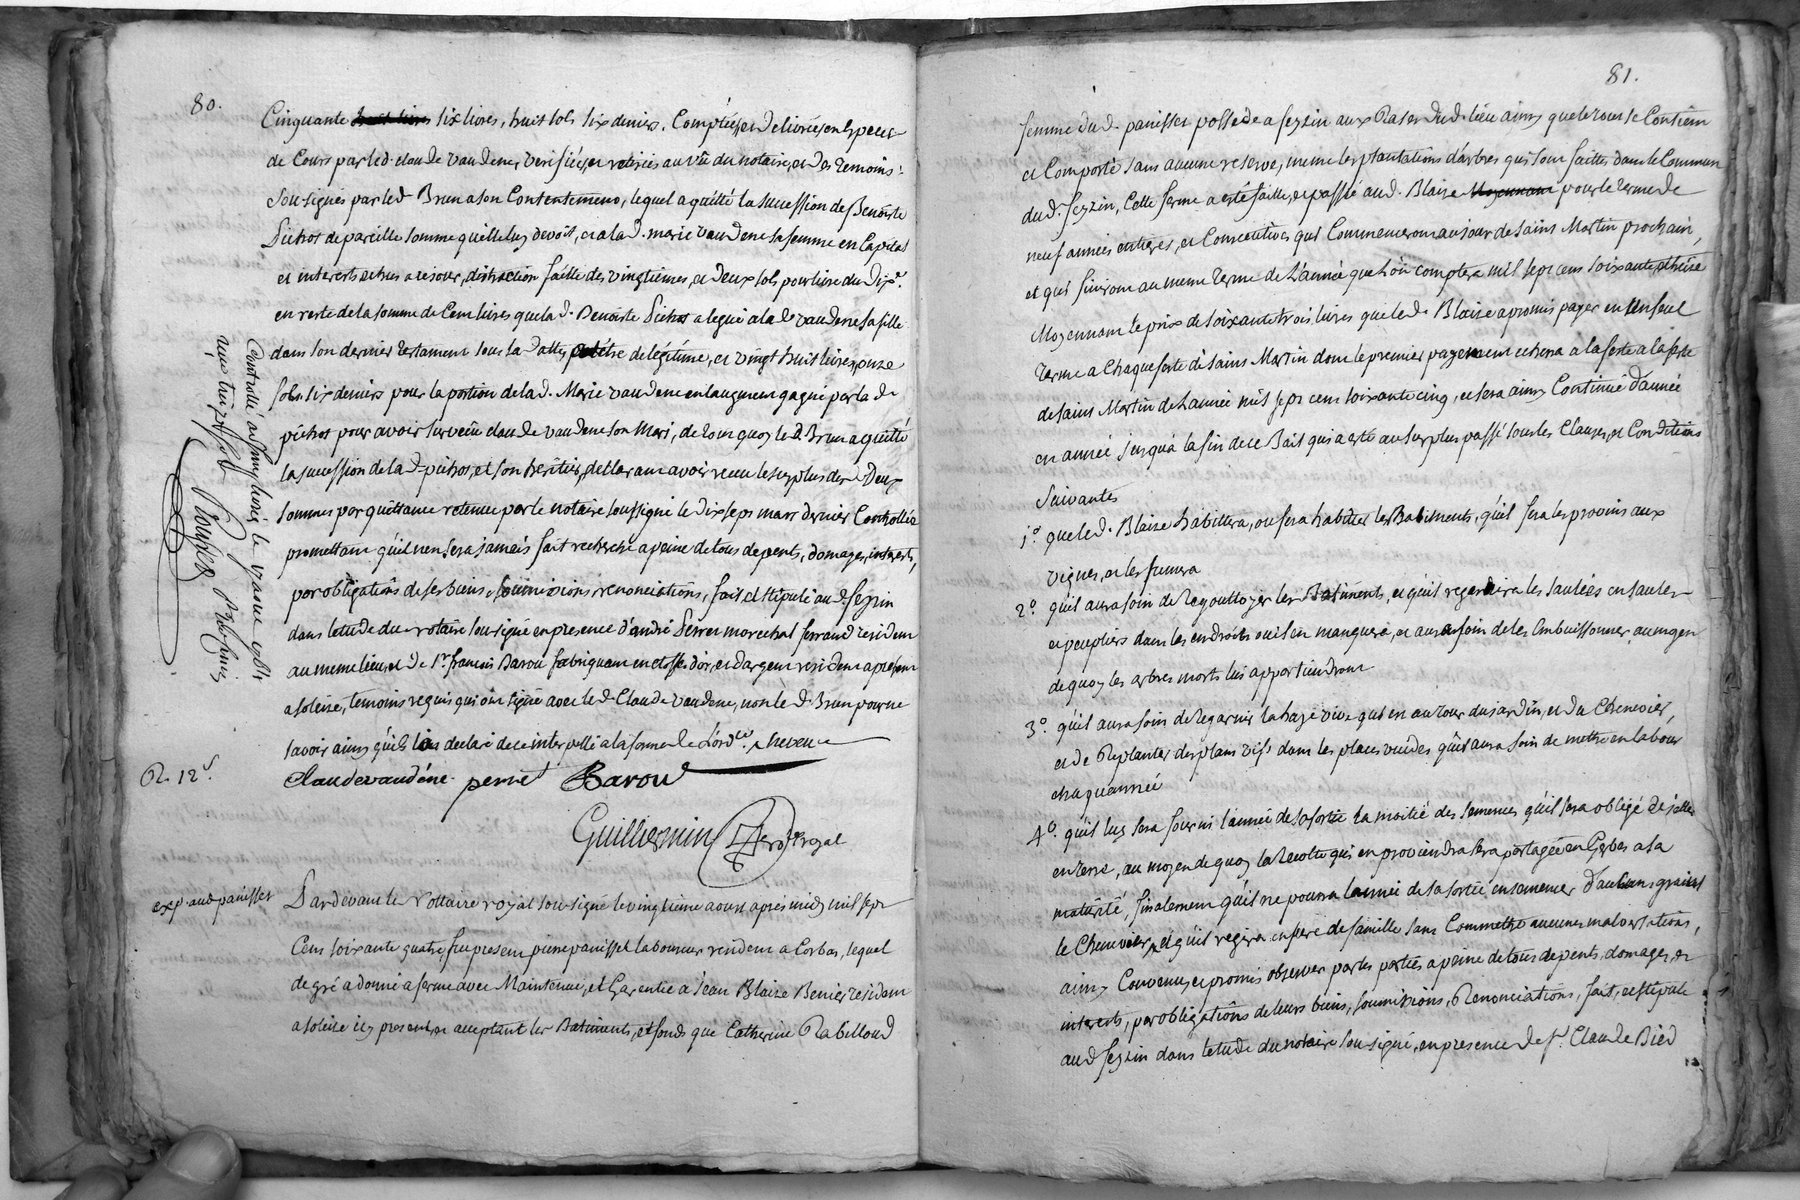 80.
Cinquante six livres, huit sols six deniers. Comptées et delivrées en Especes
de Cours par led. claude vaudene, verifiées, et retirées au vû du notaire, et des temoins
soussignés par led. Brun a son Contentement, lequel a quitté la succession de Benoiste
Pichot de pareille somme qu'elle luy devoit, et a lad. marie vaudene sa femme en Capital
et interests echus a ce jour, distraction faitte des vingtiemes, et deux sols pour livre du dix.e
en reste de la somme de Cent livres que lad. Benoiste Pichot a legué a lad. vaudene sa fille
dans son dernier testament sous sa datte, de légitime, et vingt huit livres, onze
sols six deniers pour la portion de lad. Marie vaudene en l'augment gagné par lad.
pichot pour avoir survecu claude vaudene son Mari, de tout quoy led. Brun a quitté
la succession de lad. pichot, et son heritier, declarant avoir receu le surplus des d. deux
sommes par quittance retenue par le notaire soussigné le dix sept mars dernier Controllée
promettant qu'il n'en sera jamais fait recherche a peine de tous depents, domages, interests,
par obligations de ses biens, soumissions, renonciations, fait, et stipulé aud. feyzin
dans l'etude du notaire soussigné en presence d'andré Perret marechal ferrand resident
au meme lieu, et de s.r françois Barou fabriquant en etoffes d'or, et d'argent resident a present
a solaise, temoins requis qui ont signé avec led. Claude vaudene, non led. Brun pour ne
savoir ainsi qu'il l'a declaré de ce interpellé a la forme de l'ord.ce
Controllé a
R. 12 s.
claude vaudéne perret Barou
Guilliermin No.re royal
exp. aud. panisset
Pardevant le Nottaire royal soussigné le vingtième aoust apres midy mil sept
Cens soixante quatre, fut present pierre panisset laboureur resident a Corbas, lequel
de gré a donné a ferme avec Maintenue, et Garentie a Jean Blaise Benier resident
a solaise icy present, et acceptant les Batiments, et fonds que Catherine Rabilloud
81.
femme dud. panisset possede a feyzin aux Razes dud. lieu ainsy que le tout se Contient
et Comporte sans aucune reserve, meme les plantations d'arbres qui sont faittes dans le Commun
dud. feyzin, Cette ferme a esté faitte, et passée aud. Blaise Moyennant pour le terme de
neuf années entieres, et Consecutives qui Commenceront au jour de saint Martin prochain,
et qui finiront au meme terme de L'année que L'on comptera mil sept cent soixante et treise
Moyennant le prix de soixante trois livres que led. Blaise a promis payer en un seul
terme a Chaque feste de saint Martin dont le premier payement echera a la feste a la feste
de saint Martin de L'année mil sept cens soixante cinq, et sera ainsy Continué d'année
en année jusqu'a la fin de ce Bail qui a esté au surplus passé sous les Clauses, et Conditions
suivantes
1.° que led. Blaise habittera, ou fera habitter les Batiments, qu'il fera les provins aux
vignes, et les fumera
2.° qu'il aura soin de regouttoyer les Batiments, et qu'il regarnira les saulées en saules
et peupliers dans les endroits ou il en manquera, et aura soin de les Embuissonner, au moyen
de quoy les arbres morts lui appartiendront
3.° qu'il aura soin de regarnir la haye vive qui en autour du jardin, et du Chenevier,
et de Replanter des plans vifs dans les places vuides qu'il aura soin de mettre en labour
chaque année
4.° qu'il luy sera fourni l'année de sa sortie la moitié des semences qu'il sera obligé de jetter
en terre, au moyen de quoy la recolte qui en proviendra sera partagée en Gerbes a sa
maturité, finalement qu'il ne pourra l'année de sa sortie ensemencer d'aucuns grains
le Chenevier, et qu'il regira en pere de famille sans Commettre aucunes malversations,
ainsy Convenu, et promis observer par les parties a peine de tous depents, domages, et
interests, par obligations de leurs biens, soumissions, Renonciations, fait, et stipulé
aud. feyzin dans l'etude du notaire soussigné, en presence de s.r Claude Bied